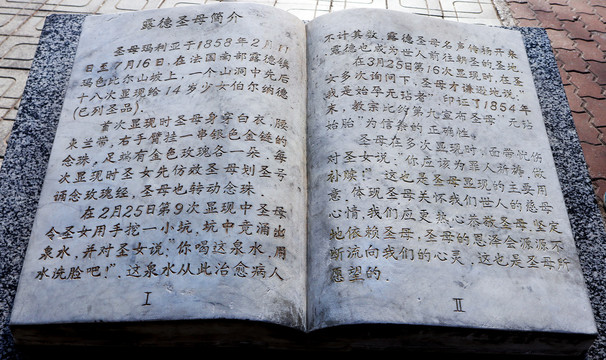 露德圣母简介
圣母玛利亚于1858年2月11
日至7月16日，在法国南部露德镇
玛色比尔山坡上，一个山洞中先后
十八次显现给14岁少女伯尔纳德
（已列圣品）.
首次显现时圣母身穿白衣，腰
束兰带，右手臂挂一串银色金链的
念珠，足端有金色玫瑰各一朵，每
次显现时圣女先仿效圣母划圣号
诵念玫瑰经，圣母也转动念珠.
在2月25日第9次显现中圣母
令圣女用手挖一小坑，坑中竟涌出
泉水，并对圣女说：“你喝这泉水，用
水洗脸吧！”.这泉水从此治愈病人
I
不计其数，露德圣母名声传扬开来
露德也成为世人前往朝圣的圣地
在3月25日第16次显现时，在圣
女多次询问下，圣母才谦逊地说：“
我是始孕无玷者”.印证了1854年
来，教宗比约第九宣布圣母“无玷
始胎”为信条的正确性.
圣母在多次显现时，面带忧伤
对圣女说：“你应该为罪人祈祷，做
补赎！”.这也是圣母显现的主要用
意.体现圣母关怀我们世人的慈母
心情，我们应更热心恭敬圣母，坚定
地依赖圣母，圣母的恩泽会源源不
断流向我们的心灵.这也是圣母所
愿望的.
II